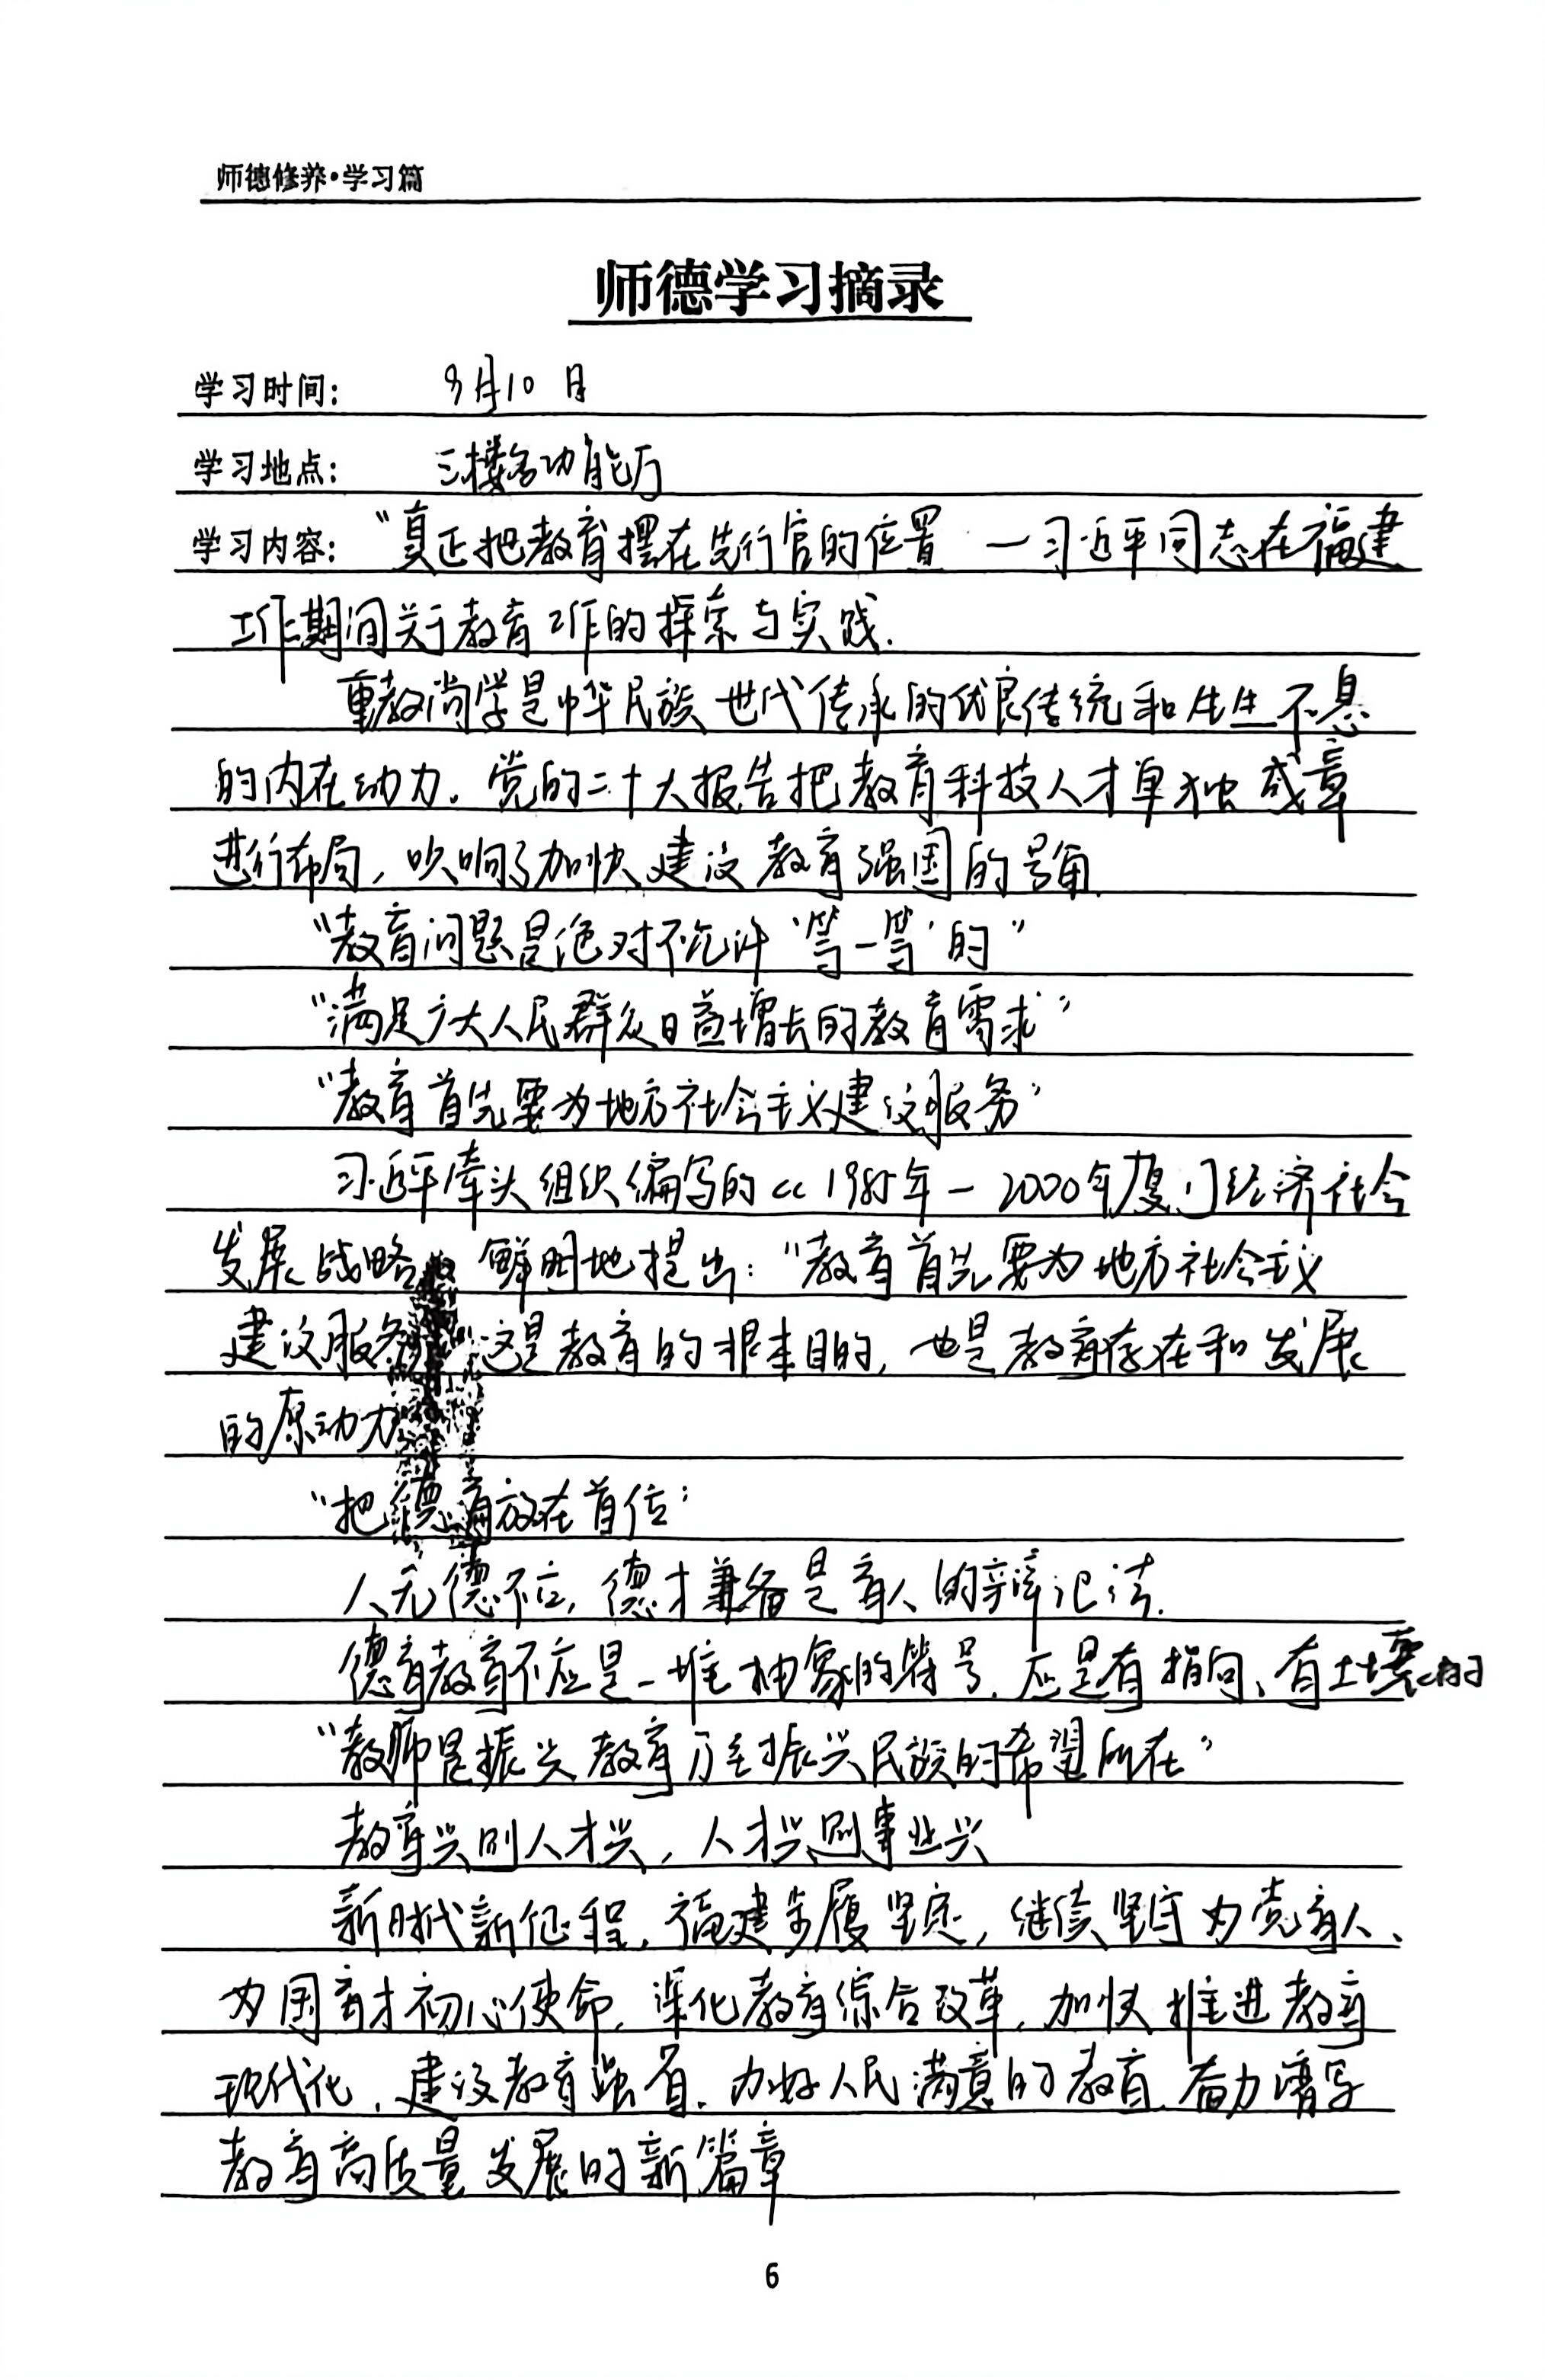 师德修养·学习篇
师德学习摘录
学习时间： 9月10日
学习地点： 三楼多功能厅
学习内容：“真正把教育摆在先行官的位置 —习近平同志在福建
工作期间关于教育工作的探索与实践.
重教尚学是中华民族世代传承的优良传统和生生不息
的内在动力. 党的二十大报告把教育科技人才单独成章
进行布局, 吹响了加快建设教育强国的号角.
“教育问题是绝对不允许‘等一等’的”
“满足广大人民群众日益增长的教育需求”
“教育首先要为地方社会主义建设服务”
习近平牵头组织编写的《1985年—2000年厦门经济社会
发展战略 鲜明地提出：“教育首先要为地方社会主义
建设服务 这是教育的根本目的, 也是教育存在和发展
的原动力
“把德育放在首位”
人无德不立, 德才兼备是育人的辩证法.
德育教育不应是一堆抽象的符号, 应是有指向、有土壤的
“教师是振兴教育乃至振兴民族的希望所在”
教育兴则人才兴, 人才兴则事业兴
新时代新征程, 福建步履坚定, 继续坚守为党育人、
为国育才初心使命, 深化教育综合改革, 加快推进教育
现代化, 建设教育强省. 办好人民满意的教育, 奋力谱写
教育高质量发展的新篇章
6